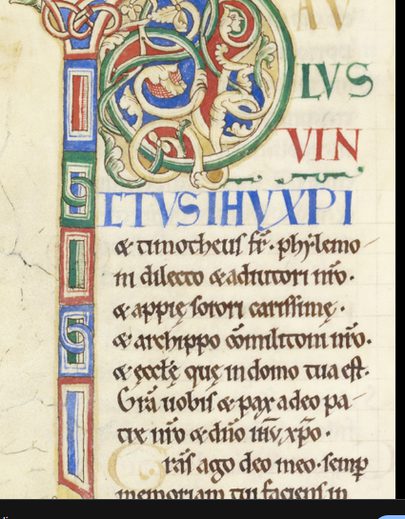 AV
LVS
VIN
CTVS IHV XPI
& timotheus fr̄. phylemo
ni dilecto & adiutori nr̄o.
& appię sorori carissimę.
& archippo cōmilitoni nr̄o.
& ęcclę quę in domo tua est.
Gr̄a uobis & pax a deo pa
tre nr̄o & dn̄o ihu xp̄o.
Grās ago deo meo. semp
memoriam tui faciens in